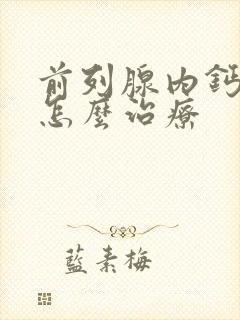 前列腺內鈣
怎麼治療
藍素梅